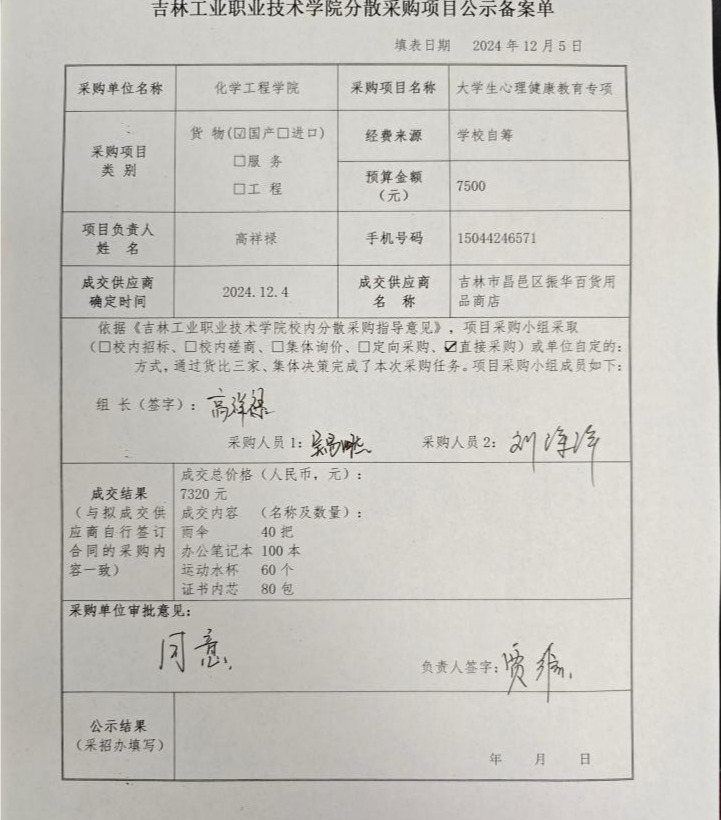 吉林工业职业技术学院分散采购项目公示备案单
填表日期 2024年12月5日
采购单位名称 化学工程学院 采购项目名称 大学生心理健康教育专项
采购项目
类别
货 物(☑国产☐进口)
☐服 务
☐工 程
经费来源 学校自筹
预算金额
(元)
7500
项目负责人
姓 名
高祥禄 手机号码 15044246571
成交供应商
确定时间
2024.12.4
成交供应商
名 称
吉林市昌邑区振华百货用
品商店
依据《吉林工业职业技术学院校内分散采购指导意见》，项目采购小组采取
(☐校内招标、☐校内磋商、☐集体询价、☐定向采购、☑直接采购)或单位自定的：
方式，通过货比三家、集体决策完成了本次采购任务。项目采购小组成员如下：
组 长(签字)：高祥禄
采购人员1： 采购人员2：
成交结果
(与拟成交供
应商自行签订
合同的采购内
容一致)
成交总价格(人民币，元)：
7320元
成交内容 (名称及数量)：
雨伞 40把
办公笔记本 100本
运动水杯 60个
证书内芯 80包
采购单位审批意见：
同意.
负责人签字：
公示结果
(采招办填写)
年 月 日